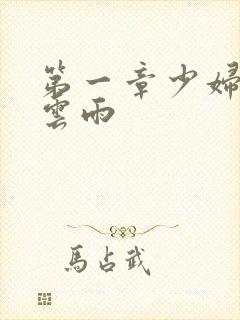 第一章少婦
雲雨
馬占武